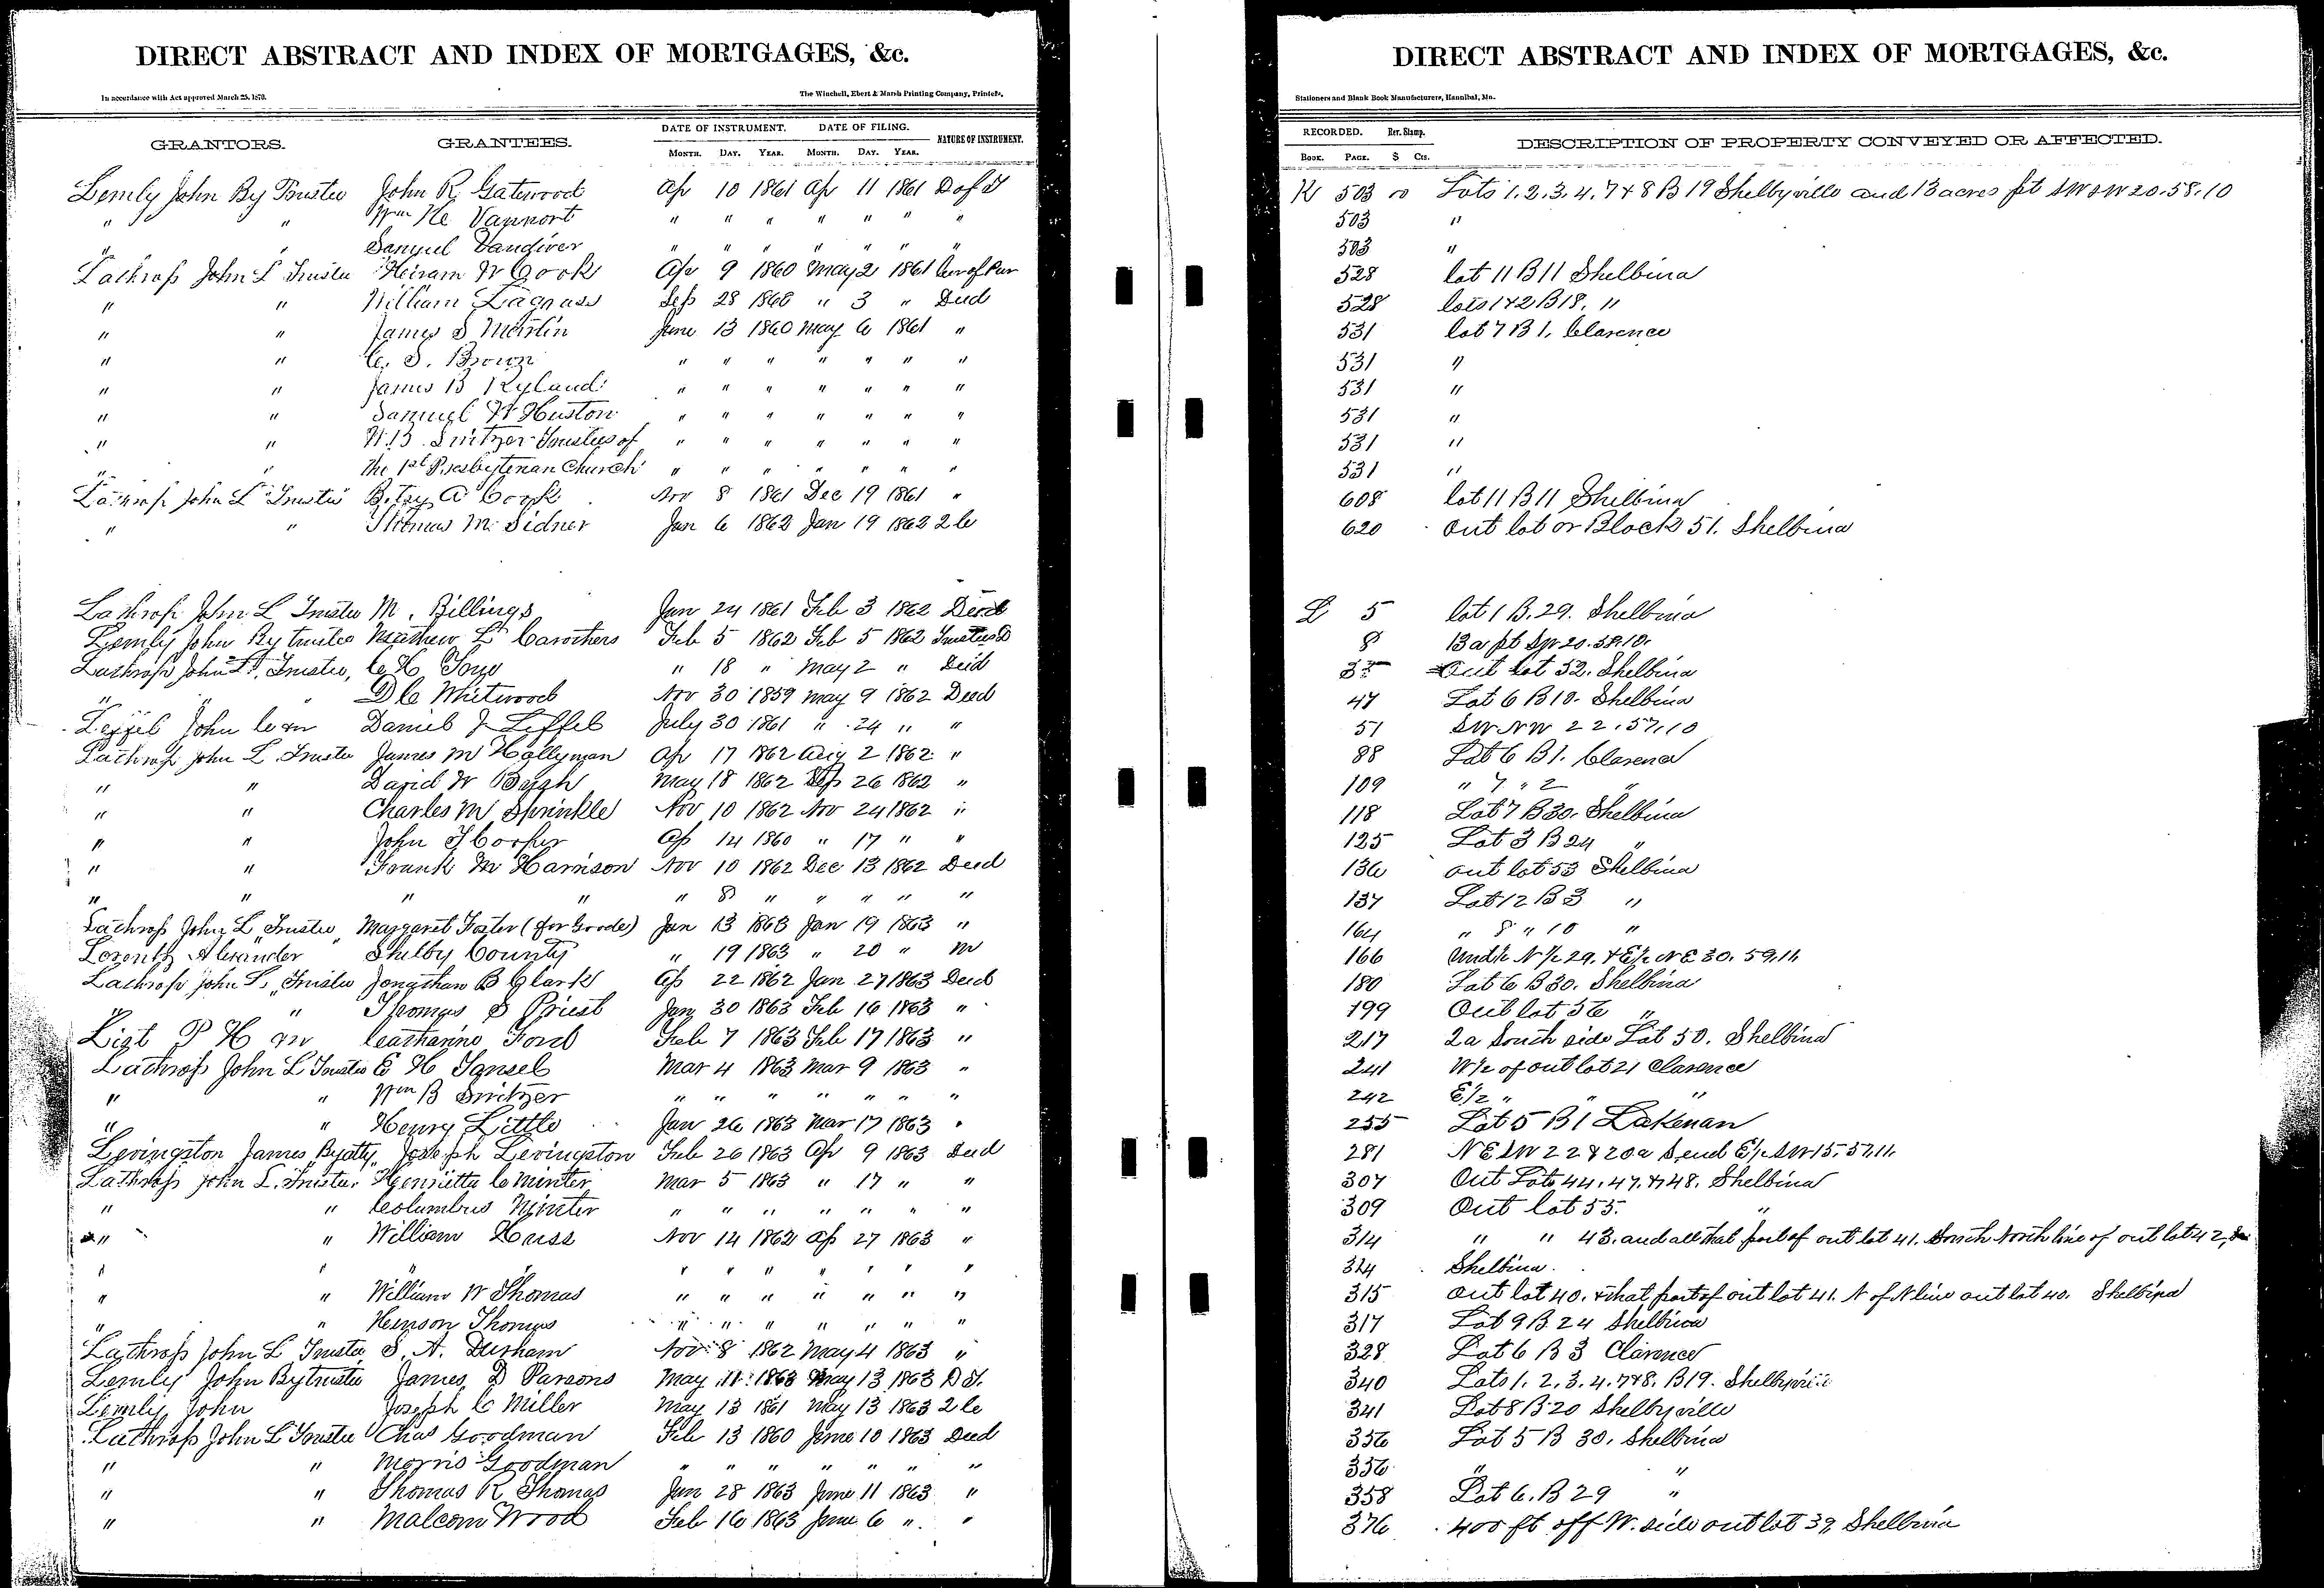 DIRECT ABSTRACT AND INDEX OF MORTGAGES, &c.
In accordance with Act approved March 25, 1870.
The Winchell, Ebert & Marsh Printing Company, Printers,
GRANTORS. GRANTEES. DATE OF INSTRUMENT. DATE OF FILING. NATURE OF INSTRUMENT.
MONTH. DAY. YEAR. MONTH. DAY. YEAR.
Lemly John By Trustee John R. Gatewood Ap 10 1861 Ap 11 1861 D of T
" " Wm H Vannort " " " " " " "
" " Samuel Vandiver " " " " " " "
Lathrop John L Trustee Hiram W Cook Ap 9 1860 May 2 1861
" " William Sep 28 1860 " 3 " Deed
" " James S Martin June 13 1860 May 6 1861 "
" " C. S. Brown " " " " " " "
" " James B Ryland " " " " " " "
" " Samuel W Huston " " " " " " "
" " W.B. Switzer Trustees of " " " " " " "
" " The 1st Presbyterian Church " " " " " " "
Lathrop John L Trustee Betsy A Cook Nov 8 1861 Dec 19 1861 "
" " Thomas M. Sidner Jan 6 1862 Jan 19 1862 2 C
Lathrop John L Trustee M. Billings Jan 24 1861 Feb 3 1862 Deed
Lemly John By trustee Mathew L Carothers Feb 5 1862 Feb 5 1862 Trustees D
Lathrop John L. Trustee, C H " 18 " May 2 " Deed
" " D C Whitwood Nov 30 1859 May 9 1862 Deed
Leffel John Daniel J Leffel July 30 1861 " 24 " "
Lathrop John L Trustee James M Hollyman Ap 17 1862 Aug 2 1862 "
" " David W Bush May 18 1862 Sep 26 1862 "
" " Charles M Sprinkle Nov 10 1862 Nov 24 1862 "
" " John T Cooper Ap 14 1860 " 17 " "
" " Frank M Harrison Nov 10 1862 Dec 13 1862 Deed
" " " " " 8 " " " " "
Lathrop John L Trustee Margaret Foster (for Goode) Jan 13 1863 Jan 19 1863 "
Lorentz Alexander Shelby County " 19 1863 " 20 " M
Lathrop John L. Trustee Jonathan B Clark Ap 22 1862 Jan 27 1863 Deed
" " Thomas D Priest Jan 30 1863 Feb 16 1863 "
Ligt P H Catharine Ford Feb 7 1863 Feb 17 1863 "
Lathrop John L Trustee E H Tansel Mar 4 1863 Mar 9 1863 "
" " Wm B Switzer " " " " " " "
" " Henry Little Jan 26 1863 Mar 17 1863 "
Levingston James By atty Joseph Levingston Feb 26 1863 Ap 9 1863 Deed
Lathrop John L. Trustee Henrietta C Minter Mar 5 1863 " 17 " "
" " Columbus Minter " " " " " " "
" " William Huss Nov 14 1862 Ap 27 1863 "
" " " " " " " " " "
" " William W Thomas " " " " " " "
" " Henson Thomas " " " " " " "
Lathrop John L Trustee S. A. Durham Nov 8 1862 May 4 1863 "
Lemly John By trustee James D Parsons May 11 1863 May 13 1863 D T.
Lemly John Joseph C Miller May 13 1861 May 13 1863 2 C
Lathrop John L Trustee Chas Goodman Feb 13 1860 June 10 1863 Deed
" " Morris Goodman " " " " " " "
" " Thomas R Thomas Jan 28 1863 June 11 1863 "
" " Malcom Wood Feb 16 1863 June 6 " "
DIRECT ABSTRACT AND INDEX OF MORTGAGES, &c.
Stationers and Blank Book Manufacturers, Hannibal, Mo.
RECORDED. Rev. Stamp. DESCRIPTION OF PROPERTY CONVEYED OR AFFECTED.
BOOK. PAGE. $ CTS.
K 503 Lots 1. 2. 3. 4. 7 & 8 B 19 Shelbyville and 13 acres pt SW SW 20. 58. 10
503 "
503 "
528 Lot 11 B 11 Shelbina
528 lots 1 & 2 B 18. "
531 lot 7 B 1. Clarence
531 "
531 "
531 "
531 "
531 "
608 lot 11 B 11 Shelbina
620 Out lot or Block 51. Shelbina
L 5 lot 1 B. 29. Shelbina
8 13 a pt 20. 58. 10.
Out Lot 52. Shelbina
47 Lot 6 B 10. Shelbina
51 SW NW 22. 57. 10
88 Lot 6 B 1. Clarence
109 " 7. " 2 "
118 Lot 7 B 30. Shelbina
125 Lot 3 B 24 "
136 out lot 53 Shelbina
137 Lot 12 B 3 "
164 " 8 " 10 "
166 Und ½ N ½ 29. & E ½ NE 30. 59. 11.
180 Lot 6 B 30. Shelbina
199 Out lot 56 "
217 2 a South side Lot 50. Shelbina
241 W ½ of out lot 21 Clarence
242 E ½ " " "
255 Lot 5 B 1 Lakenan
281 NE SW 22 & 20 a S end E ½ SW 15. 57. 11.
307 Out Lots 44. 47. & 48. Shelbina
309 Out lot 55. "
314 " " 43. and all that part of out lot 41. South North line of out lot 42,
314 Shelbina.
315 out lot 40. & that part of out lot 41. N of N line out lot 40. Shelbina
317 Lot 9 B 24 Shelbina
328 Lot 6 B 3 Clarence
340 Lots 1. 2. 3. 4. 7 & 8. B 19. Shelbyville
341 Lot 8 B 20 Shelbyville
356 Lot 5 B 30. Shelbina
356 " "
358 Lot 6. B 29 "
376 400 ft off W. side out lot 39 Shelbina